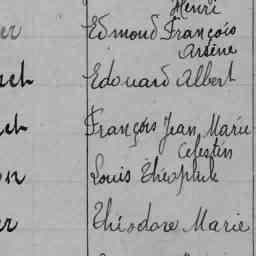 Henri
er Edmond François
Arsène
Edouard Albert
François Jean Marie
Celestin
on Louis Théophile
er Théodore Marie